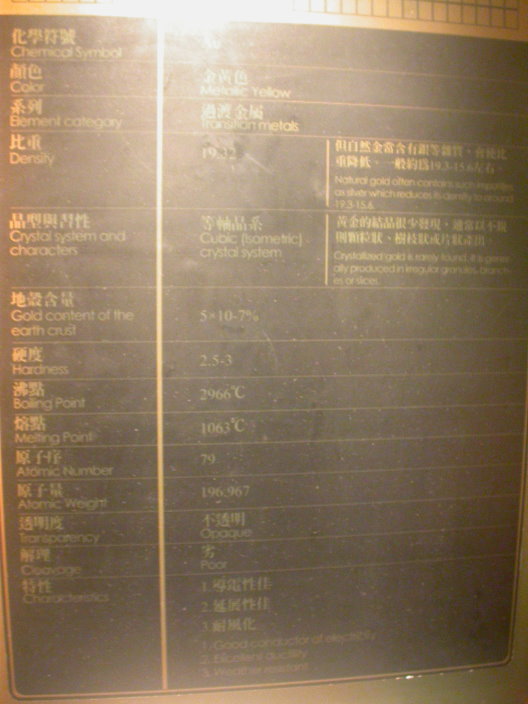 化學符號
Chemical Symbol
顏色
Color
金黃色
Metallic Yellow
系列
Element category
過渡金屬
Transition metals
比重
Density
19.32
但自然金常含有銀等雜質，會使比
重降低，一般約為19.3-15.6左右。
Natural gold often contains such impurities
as silver which reduces its density to around
19.3-15.6.
晶型與習性
Crystal system and
characters
等軸晶系
Cubic (Isometric)
crystal system
黃金的結晶很少發現，通常以不規
則顆粒狀、樹枝狀或片狀產出。
Crystallized gold is rarely found; it is gener-
ally produced in irregular granules, branch-
es or slices.
地殼含量
Gold content of the
earth crust
5×10-7%
硬度
Hardness
2.5-3
沸點
Boiling Point
2966℃
熔點
Melting Point
1063℃
原子序
Atomic Number
79
原子量
Atomic Weight
196.967
透明度
Transparency
不透明
Opaque
解理
Cleavage
劣
Poor
特性
Characteristics
1.導電性佳
2.延展性佳
3.耐風化
1. Good conductor of electricity
2. Excellent ductility
3. Weather resistant